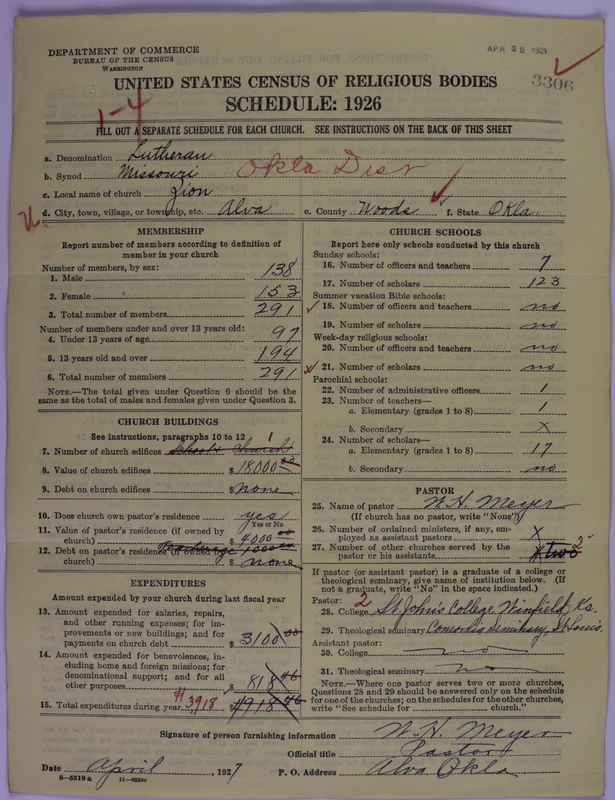 DEPARTMENT OF COMMERCE
BUREAU OF THE CENSUS
WASHINGTON
APR 28 192
3306
UNITED STATES CENSUS OF RELIGIOUS BODIES
SCHEDULE: 1926
1-4
FILL OUT A SEPARATE SCHEDULE FOR EACH CHURCH. SEE INSTRUCTIONS ON THE BACK OF THIS SHEET
a. Denomination Lutheran
b. Synod Missouri Okla Dist
c. Local name of church Zion
d. City, town, village, or township, etc. Alva e. County Woods f. State Okla.
MEMBERSHIP
Report number of members according to definition of
member in your church
Number of members, by sex:
1. Male 138
2. Female 153
3. Total number of members 291
Number of members under and over 13 years old:
4. Under 13 years of age 97
5. 13 years old and over 194
6. Total number of members 291
NOTE.—The total given under Question 6 should be
the same as the total of males and females given under Question 3.
CHURCH BUILDINGS
See instructions, paragraphs 10 to 12
7. Number of church edifices School & Church 1
8. Value of church edifices $18000 00
9. Debt on church edifices $none
10. Does church own pastor's residence yes
Yes or No
11. Value of pastor's residence (if owned by
church) $4000 00
12. Debt on pastor's residence (if owned by
church) $ none
EXPENDITURES
Amount expended by your church during last fiscal year
13. Amount expended for salaries, repairs,
and other running expenses; for im-
provements or new buildings; and for
payments on church debt $3100 00
14. Amount expended for benevolences, in-
cluding home and foreign missions; for
denominational support; and for all
other purposes $ 818 46
15. Total expenditures during year $3918 $3918 46
CHURCH SCHOOLS
Report here only schools conducted by this church
Sunday schools:
16. Number of officers and teachers 7
17. Number of scholars 123
Summer vacation Bible schools:
18. Number of officers and teachers no
19. Number of scholars no
Week-day religious schools:
20. Number of officers and teachers no
21. Number of scholars no
Parochial schools:
22. Number of administrative officers 1
23. Number of teachers—
a. Elementary (grades 1 to 8) 1
b. Secondary x
24. Number of scholars—
a. Elementary (grades 1 to 8) 17
b. Secondary no
PASTOR
25. Name of pastor W. H. Meyer
(If church has no pastor, write "None")
26. Number of ordained ministers, if any, em-
ployed as assistant pastors x
27. Number of other churches served by the
pastor or his assistants two 2
If pastor (or assistant pastor) is a graduate of a college or
theological seminary, give name of institution below. (If
not a graduate, write "No" in the space indicated.)
Pastor: 2
28. College St. John's College, Winfield, Ks.
29. Theological seminary Concordia Seminary, St Louis
Assistant pastor:
30. College no
31. Theological seminary no
NOTE.—Where one pastor serves two or more churches,
Questions 28 and 29 should be answered only on the schedule
for one of the churches; on the schedules for the other churches,
write "See schedule for church."
Signature of person furnishing information W. H. Meyer
Official title Pastor
Date April, 1927 P. O. Address Alva Okla